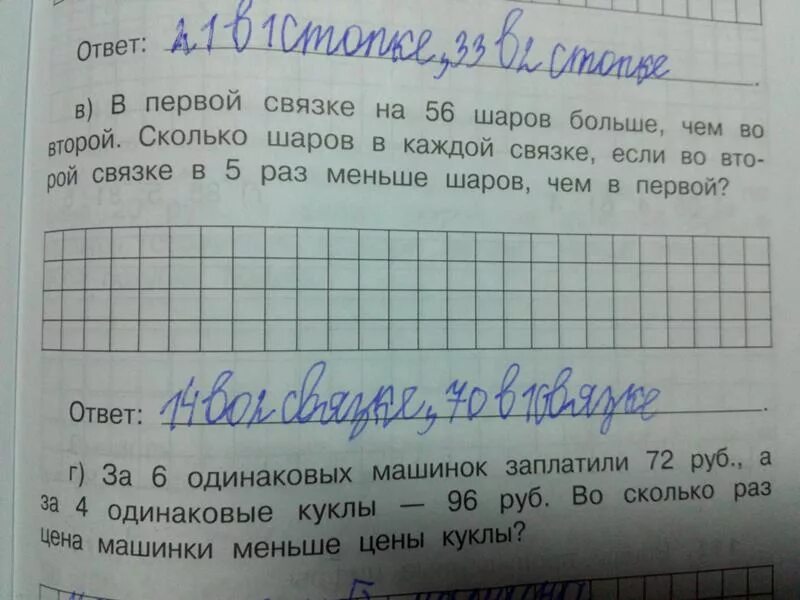 Ответ: 21 в 1 стопке, 33 в 2 стопке.
в) В первой связке на 56 шаров больше, чем во
второй. Сколько шаров в каждой связке, если во вто-
рой связке в 5 раз меньше шаров, чем в первой?
Ответ: 14 во 2 связке, 70 в 1 связке.
г) За 6 одинаковых машинок заплатили 72 руб., а
за 4 одинаковые куклы — 96 руб. Во сколько раз
цена машинки меньше цены куклы?